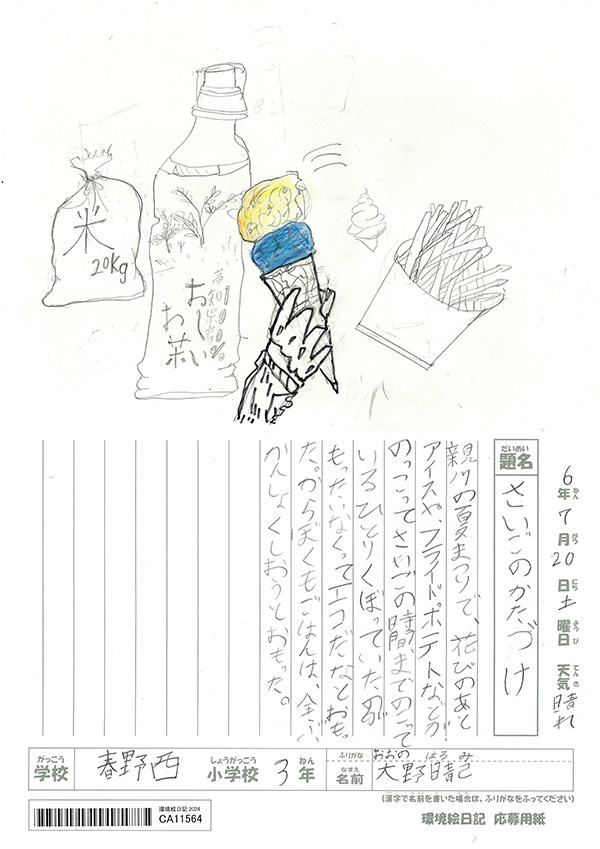 米
20kg
高知県産100%
おーしい
お茶
6年7月20日土曜日 天気晴れ
ねん がつ にち ようび てんき
だいめい
題名 さいごのかたづけ
親川の夏まつりで、花びのあと
アイスや、フライドポテトなどが
のっこってさいごの時間までのこって
いるひとりくぼっていたのが
もったいなくってエコだなとおも
た。からぼくもごはんは、全ぶ
かんしょくしおうとおもった。
がっこう しょうがっこう ねん ふりがな おおの はる み
学校 春野西 小学校 3年 なまえ 名前 大野晴己
(漢字で名前を書いた場合は、ふりがなをふってください)
環境絵日記2024
CA11564
環境絵日記 応募用紙